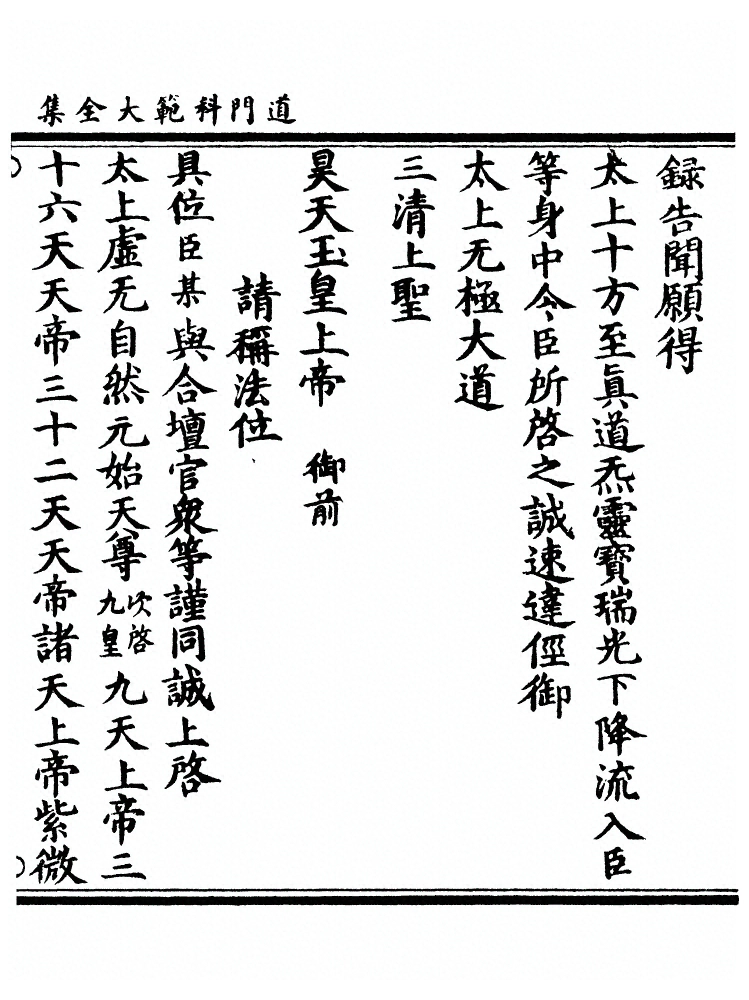 道門科範大全集
録告聞願得
太上十方至眞道炁靈寶瑞光下降流入臣
等身中令臣所啓之誠速達俓御
太上无極大道
三清上聖
昊天玉皇上帝　御前
請稱法位
具位臣某與合壇官衆等謹同誠上啓
太上虛无自然元始天尊次啓九皇九天上帝三
十六天天帝三十二天天帝諸天上帝紫微